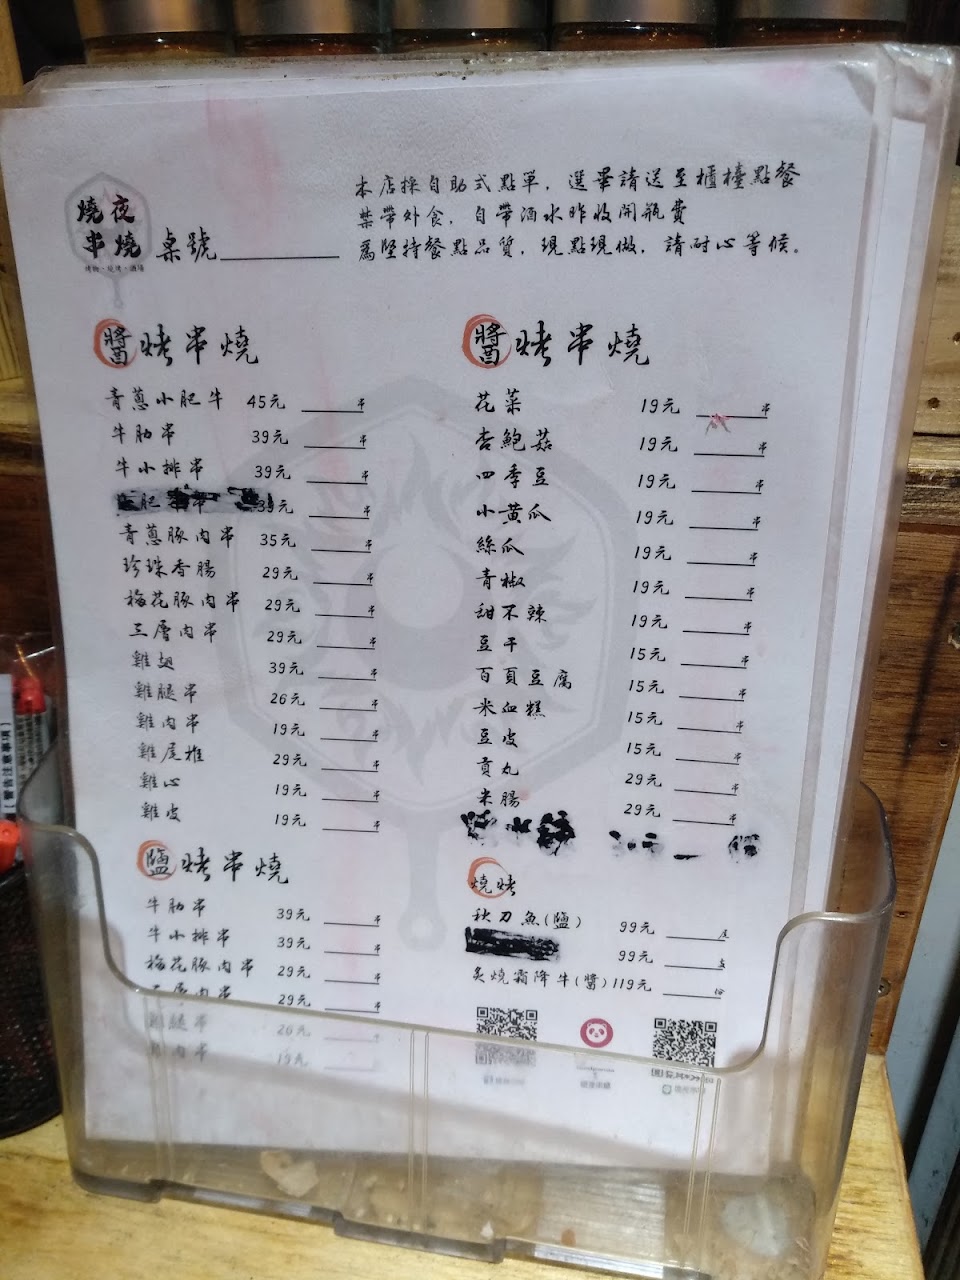 夜燒
串燒
烤物、燒烤、酒場
桌號
本店採自助式點單，選畢請送至櫃檯點餐
禁帶外食，自帶酒水昨收開瓶費
為堅持餐點品質，現點現做，請耐心等候。
醬烤串燒
青蔥小肥牛 45元 串
牛肋串 39元 串
牛小排串 39元 串
肥 串 39元 串
青蔥豚肉串 35元 串
珍珠香腸 29元 串
梅花豚肉串 29元 串
三層肉串 29元 串
雞翅 39元 串
雞腿串 26元 串
雞肉串 19元 串
雞尾椎 29元 串
雞心 19元 串
雞皮 19元 串
鹽烤串燒
牛肋串 39元 串
牛小排串 39元 串
梅花豚肉串 29元 串
三層肉串 29元 串
雞腿串 26元
雞肉串 19元
醬烤串燒
花菜 19元 串
杏鮑菇 19元 串
四季豆 19元 串
小黃瓜 19元 串
絲瓜 19元 串
青椒 19元 串
甜不辣 19元 串
豆干 15元 串
百頁豆腐 15元 串
米血糕 15元 串
豆皮 15元 串
貢丸 29元 串
米腸 29元 串
燒烤
秋刀魚(鹽) 99元 尾
99元 支
炙燒霜降牛(醬) 119元 份
【警告注意事項】